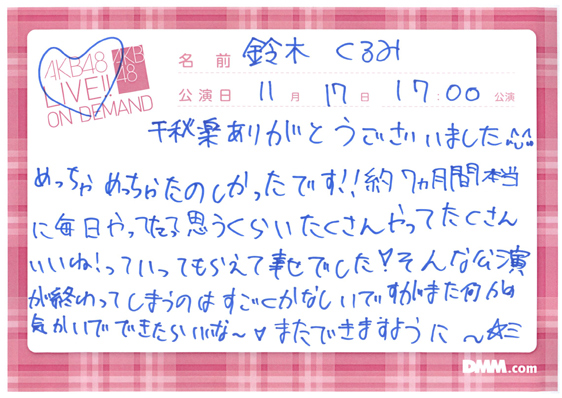 AKB48
LIVE!!
ON DEMAND
AKB
48
名前 鈴木 くるみ
公演日 11月 17日 17:00 公演
千秋楽ありがとうございました
めっちゃめっちゃたのしかったです!!約7ヵ月間本当
に毎日やってたって思うくらいたくさんやってたくさん
いいね!っていってもらえて幸せでした♡そんな公演
が終わってしまうのはすごくかなしいですがまた何かの
気かいでできたらいいな〜♡またできますように〜☆ミ
DMM.com